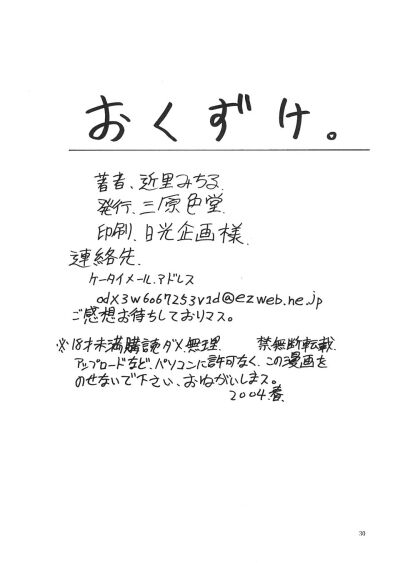 おくずけ。
著者、近里みちる
発行、三原色堂
印刷、日光企画様
連絡先、
ケータイメール、アドレス
odx3w6o67253v1d@ezweb.ne.jp
ご感想お待ちしておりマス。
※18才未満購読ダメ無理、 禁無断転載
アップロードなど、パソコンに許可なく、この漫画を
のせないで下さい、おねがいしまス。
2004春
30